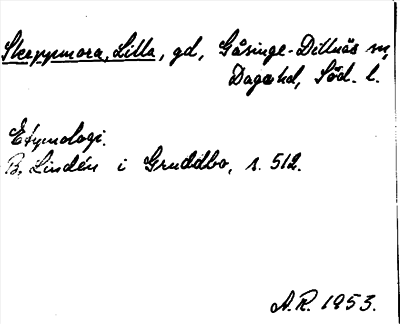 Skeppmora, Lilla, gd, Gåsinge-Dillnäs sn,
Daga hd, Söd. l.
Etymologi.
B. Lindén i Gruddbo, s. 512.
A.R. 1953.